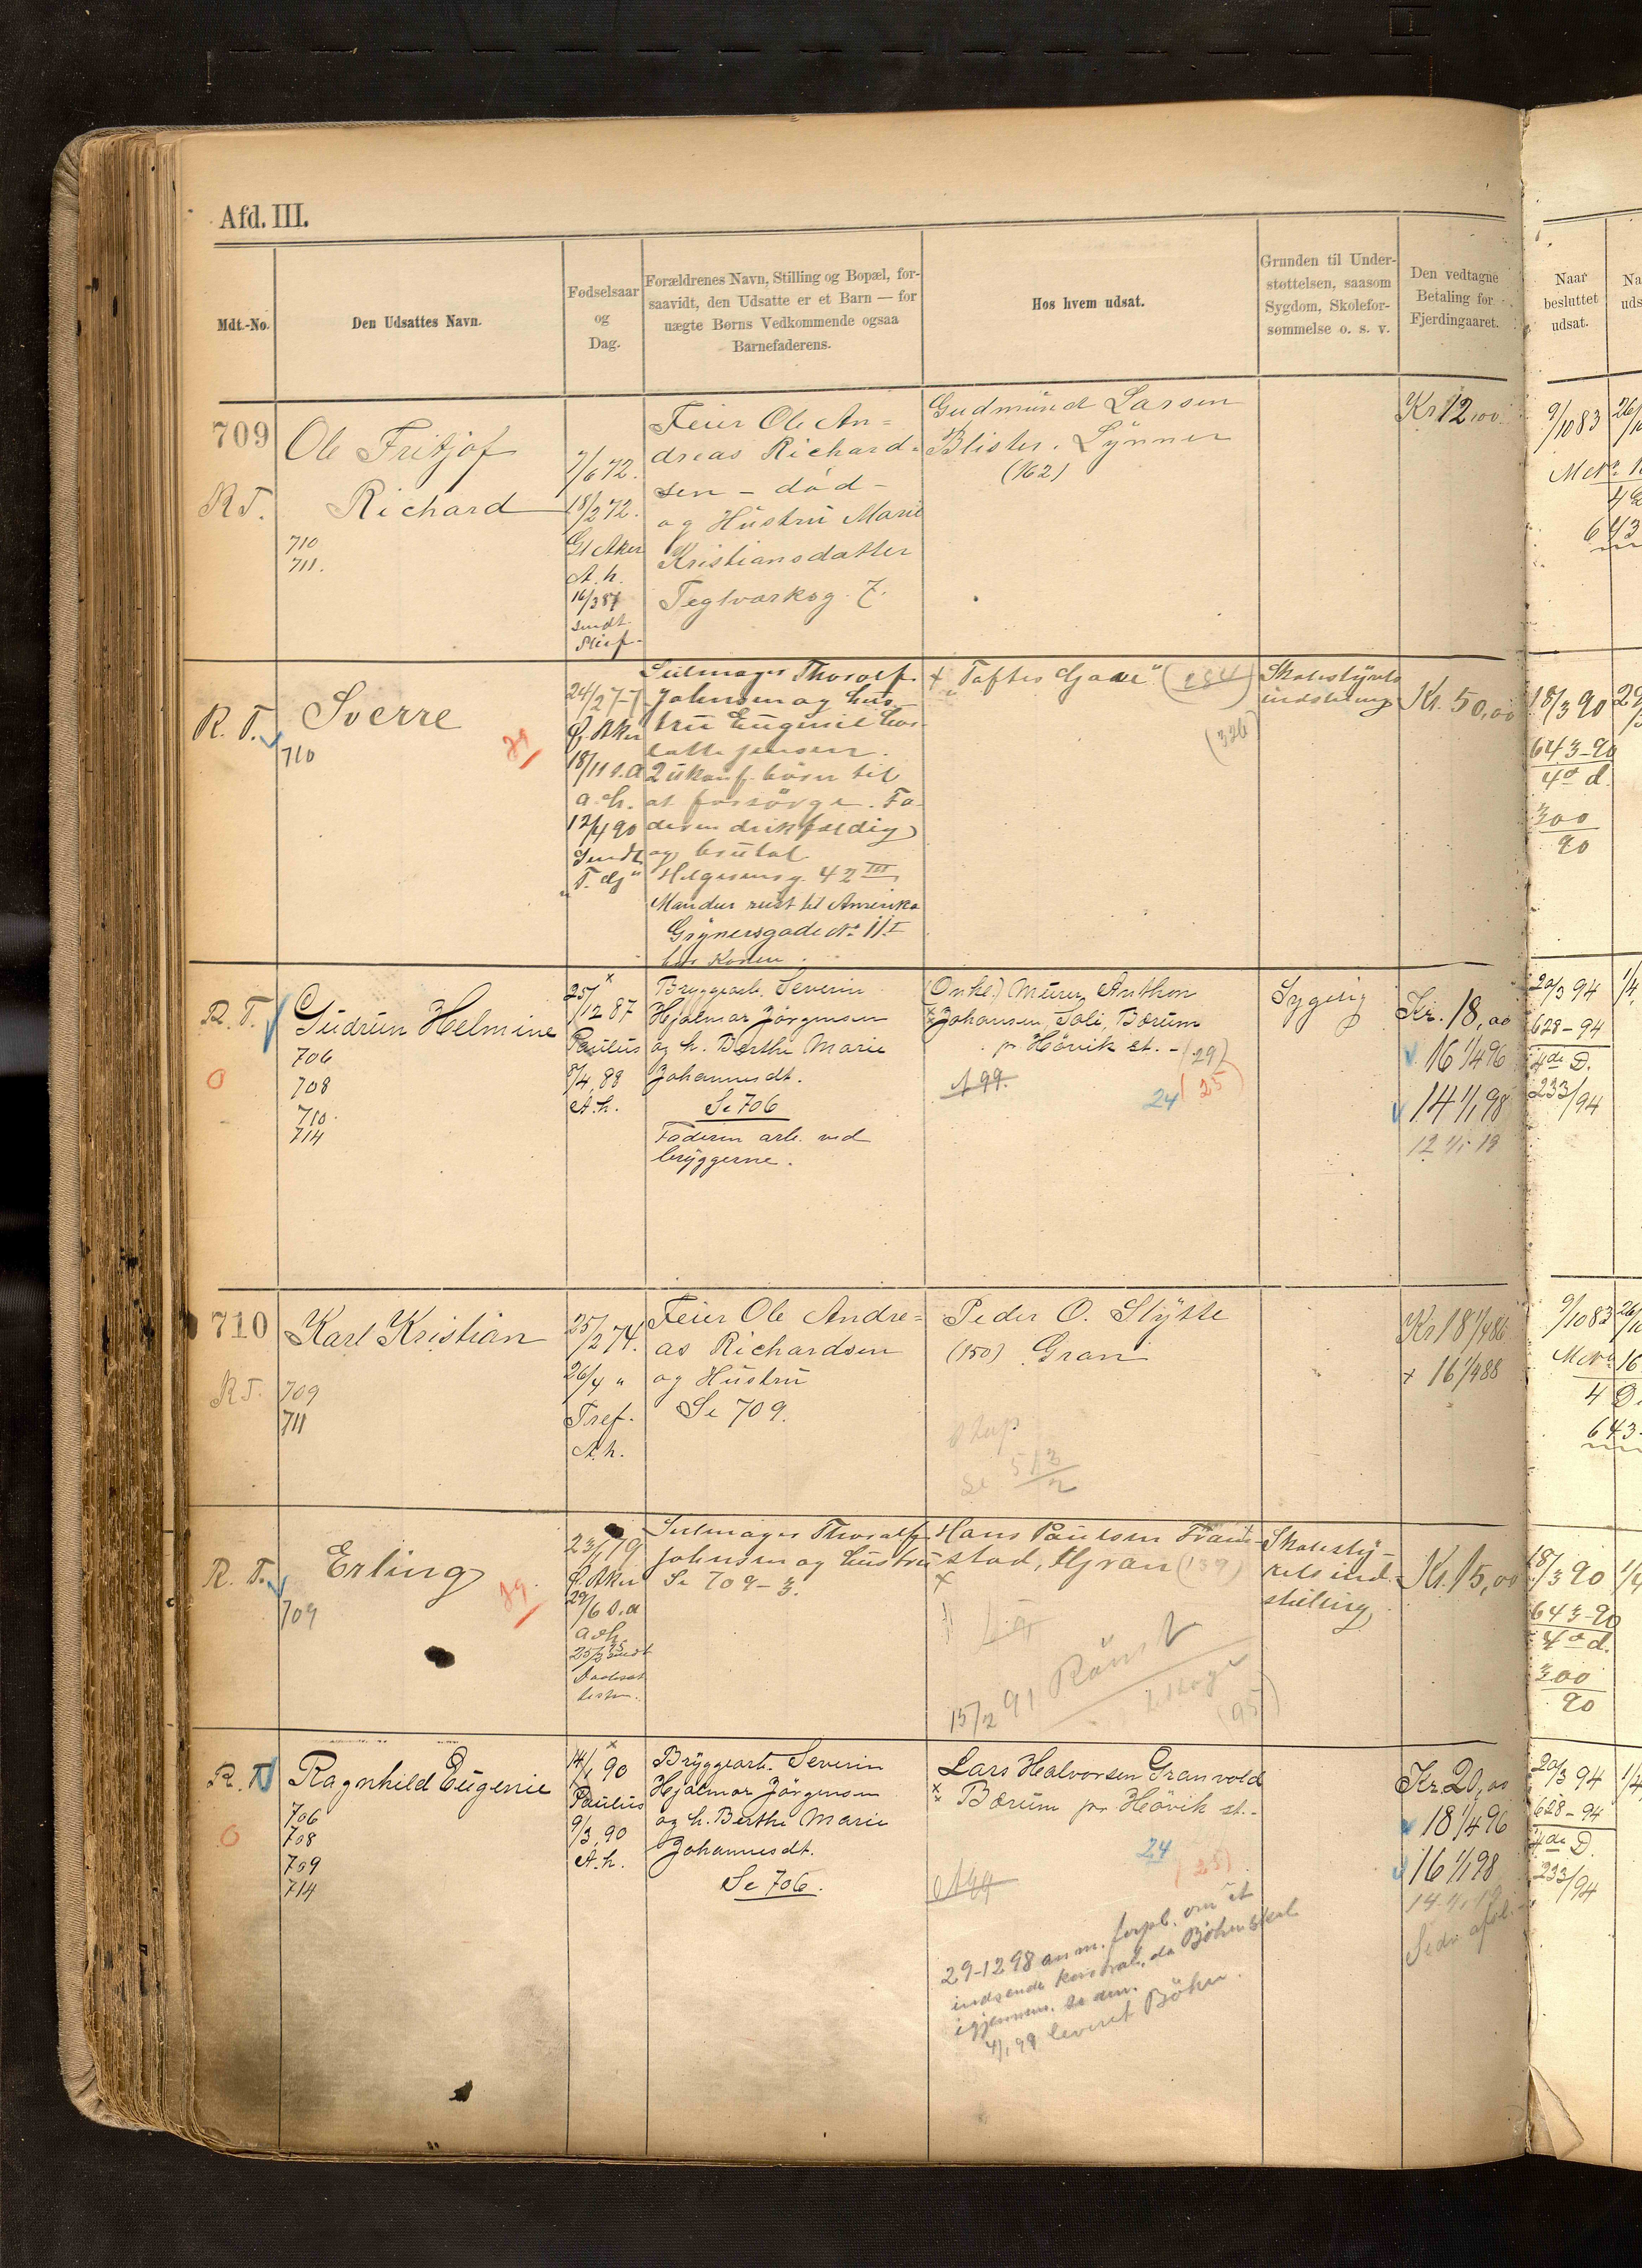 Afd. III.
Mdt.-No.
Den Udsattes Navn.
Fødselsaar
og
Dag.
Forældrenes Navn, Stilling og Bopæl, for-
saavidt, den Udsatte er et Barn — for
uægte Børns Vedkommende ogsaa
Barnefaderens.
Hos hvem udsat.
Grunden til Under-
støttelsen, saasom
Sygdom, Skolefor-
sømmelse o. s. v.
Den vedtagne
Betaling for
Fjerdingaaret.
Naar
besluttet
udsat.
Na
uds
709
R T.
Ole Fritjof
Richard
710
711.
7/6 72.
18/2 72.
Gl Aker
A. h.
16/3 87
sendt
Feier Ole An=
dreas Richard=
sen – död –
og Hustru Marie
Kristiansdatter
Teglværksg. 7.
Gudmund Larsen
Blister. Lynner
(162)
Kr 12,00.
9/10 83
26/
643
R. T.
Sverre
710
24/2 77
G. Aker
18/11 s.a
a. h.
12/4 90
Sendt
"T. G"
Selmager Thoralf
Johnsen og hus-
tru Eugenie
Jensen.
2 ukonf. börn til
at forsörge. Fa-
deren drikfældig
og brutal
Helgesensg. 42 III
Manden reist til Amerika
Grünersgade No 11 I
bor Konen.
+ "Toftes Gave" (184)
(326)
Skolestyrets
indstilling
Kr. 50,00
18/3 90
643-90
4de d.
300
90
R. T.
Gudrun Helmine
706
708
710.
714
25/12 87
Paulus
8/4, 88
A. h.
Bryggearb. Severin
Hjalmar Jörgensen
og h. Berthe Marie
Johannesdt.
Se 706
Faderen arb. ved
bryggerne.
(Onkel) Murer Anthon
Johansen, Soli, Bærum
pr Hövik st. – (29)
A 99.
24 (25)
Sygelig
Kr. 18,00
16 1/4 96
14 1/1 98
20/3 94
1/4
628-94
4de D.
233/94
710
R T.
Karl Kristian
709
711
25/2 74.
26/4 "
Tref.
A. h.
Feier Ole Andre=
as Richardsen
og Hustru
Se 709.
Peder O. Slytte
(150) Gran
Se 513/2
Kr 18 1/4 86
+ 16 1/4 88
9/10 83
26/
4 D.
643
R. T.
Erling
709
23/1 79
G. Aker
29/6 s.a
a. h
Selmager Thoralf
Johnsen og hustru
Se 709-3.
Hans Paulsen
stad, Gran (139)
+
15/2 91
(95)
Skolesty-
rets ind-
stilling
Kr. 15,00
18/3 90
1/4
643-90
4de d.
300
90
R. T.
Ragnhild Eugenie
706
708
709
714
14/1 90
Paulus
9/3, 90
A. h.
Bryggearb. Severin
Hjalmar Jörgensen
og h. Berthe Marie
Johannesdt.
Se 706.
Lars Halvorsen Granvold
Bærum pr Hövik st.-
24
(25)
A 99
29-12 98 anm. forpl. om at
indsende
igjennem.
4/1 99 leveret Böhn.
Kr. 20,00
18 1/4 96
16 1/1 98
20/3 94
1/4
628-94
4de D.
233/94